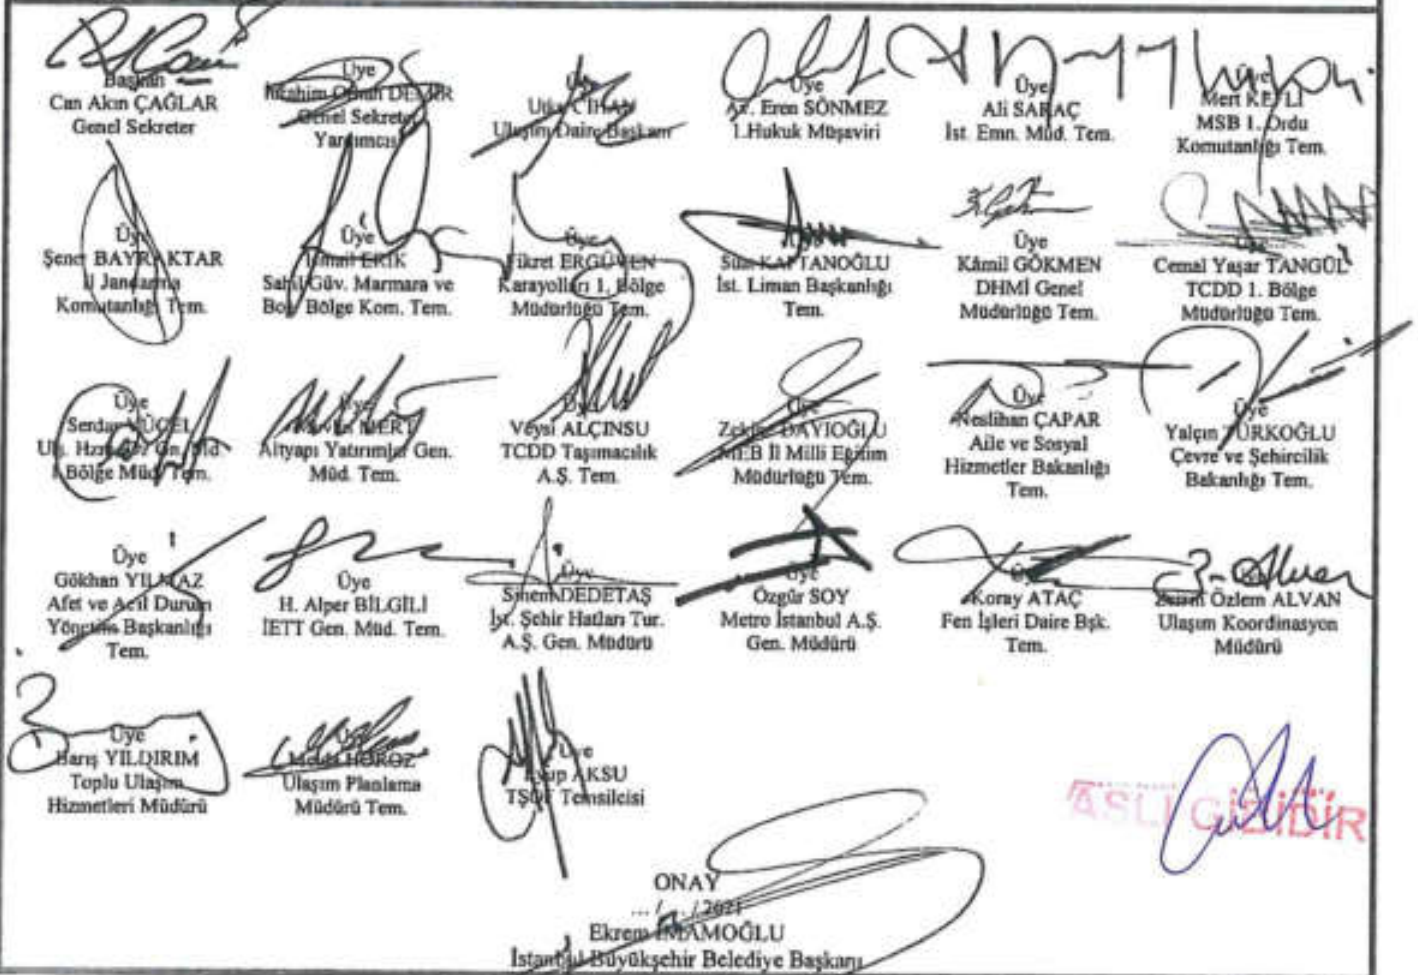 Başkan
Can Akın ÇAĞLAR
Genel Sekreter
Üye
İbrahim Orhan DEMİR
Genel Sekreter
Yardımcısı
Üye
Utku CİHAN
Ulaşım Daire Başkanı
Üye
Av. Eren SÖNMEZ
1.Hukuk Müşaviri
Üye
Ali SARAÇ
İst. Emn. Müd. Tem.
Üye
Mert
MSB 1. Ordu
Komutanlığı Tem.
Üye
Şener BAYRAKTAR
İl Jandarma
Komutanlığı Tem.
Üye
İsmail ERİK
Sahil Güv. Marmara ve
Boğ. Bölge Kom. Tem.
Üye
Fikret ERGÜVEN
Karayolları 1. Bölge
Müdürlüğü Tem.
Üye
KAPTANOĞLU
İst. Liman Başkanlığı
Tem.
Üye
Kâmil GÖKMEN
DHMİ Genel
Müdürlüğü Tem.
Üye
Cemal Yaşar TANGÜL
TCDD 1. Bölge
Müdürlüğü Tem.
Üye
Serdar YÜCEL
Ulş. Gn. Md.
1.Bölge Müd. Tem.
Üye
MERT
Altyapı Yatırımlar Gen.
Müd. Tem.
Üye
Veysi ALÇINSU
TCDD Taşımacılık
A.Ş. Tem.
Üye
DAYIOĞLU
MEB İl Milli Eğitim
Müdürlüğü Tem.
Üye
Neslihan ÇAPAR
Aile ve Sosyal
Hizmetler Bakanlığı
Tem.
Üye
Yalçın TÜRKOĞLU
Çevre ve Şehircilik
Bakanlığı Tem.
Üye
Gökhan YILMAZ
Afet ve Acil Durum
Yönetim Başkanlığı
Tem.
Üye
H. Alper BİLGİLİ
İETT Gen. Müd. Tem.
Üye
Sinem DEDETAŞ
İst. Şehir Hatları Tur.
A.Ş. Gen. Müdürü
Üye
Özgür SOY
Metro İstanbul A.Ş.
Gen. Müdürü
Üye
Koray ATAÇ
Fen İşleri Daire Bşk.
Tem.
Özlem ALVAN
Ulaşım Koordinasyon
Müdürü
Üye
Barış YILDIRIM
Toplu Ulaşım
Hizmetleri Müdürü
HOROZ
Ulaşım Planlama
Müdürü Tem.
Üye
Eyüp AKSU
TŞOF Temsilcisi
ASLI GİBİDİR
ONAY
... / ... / 2021
Ekrem İMAMOĞLU
İstanbul Büyükşehir Belediye Başkanı